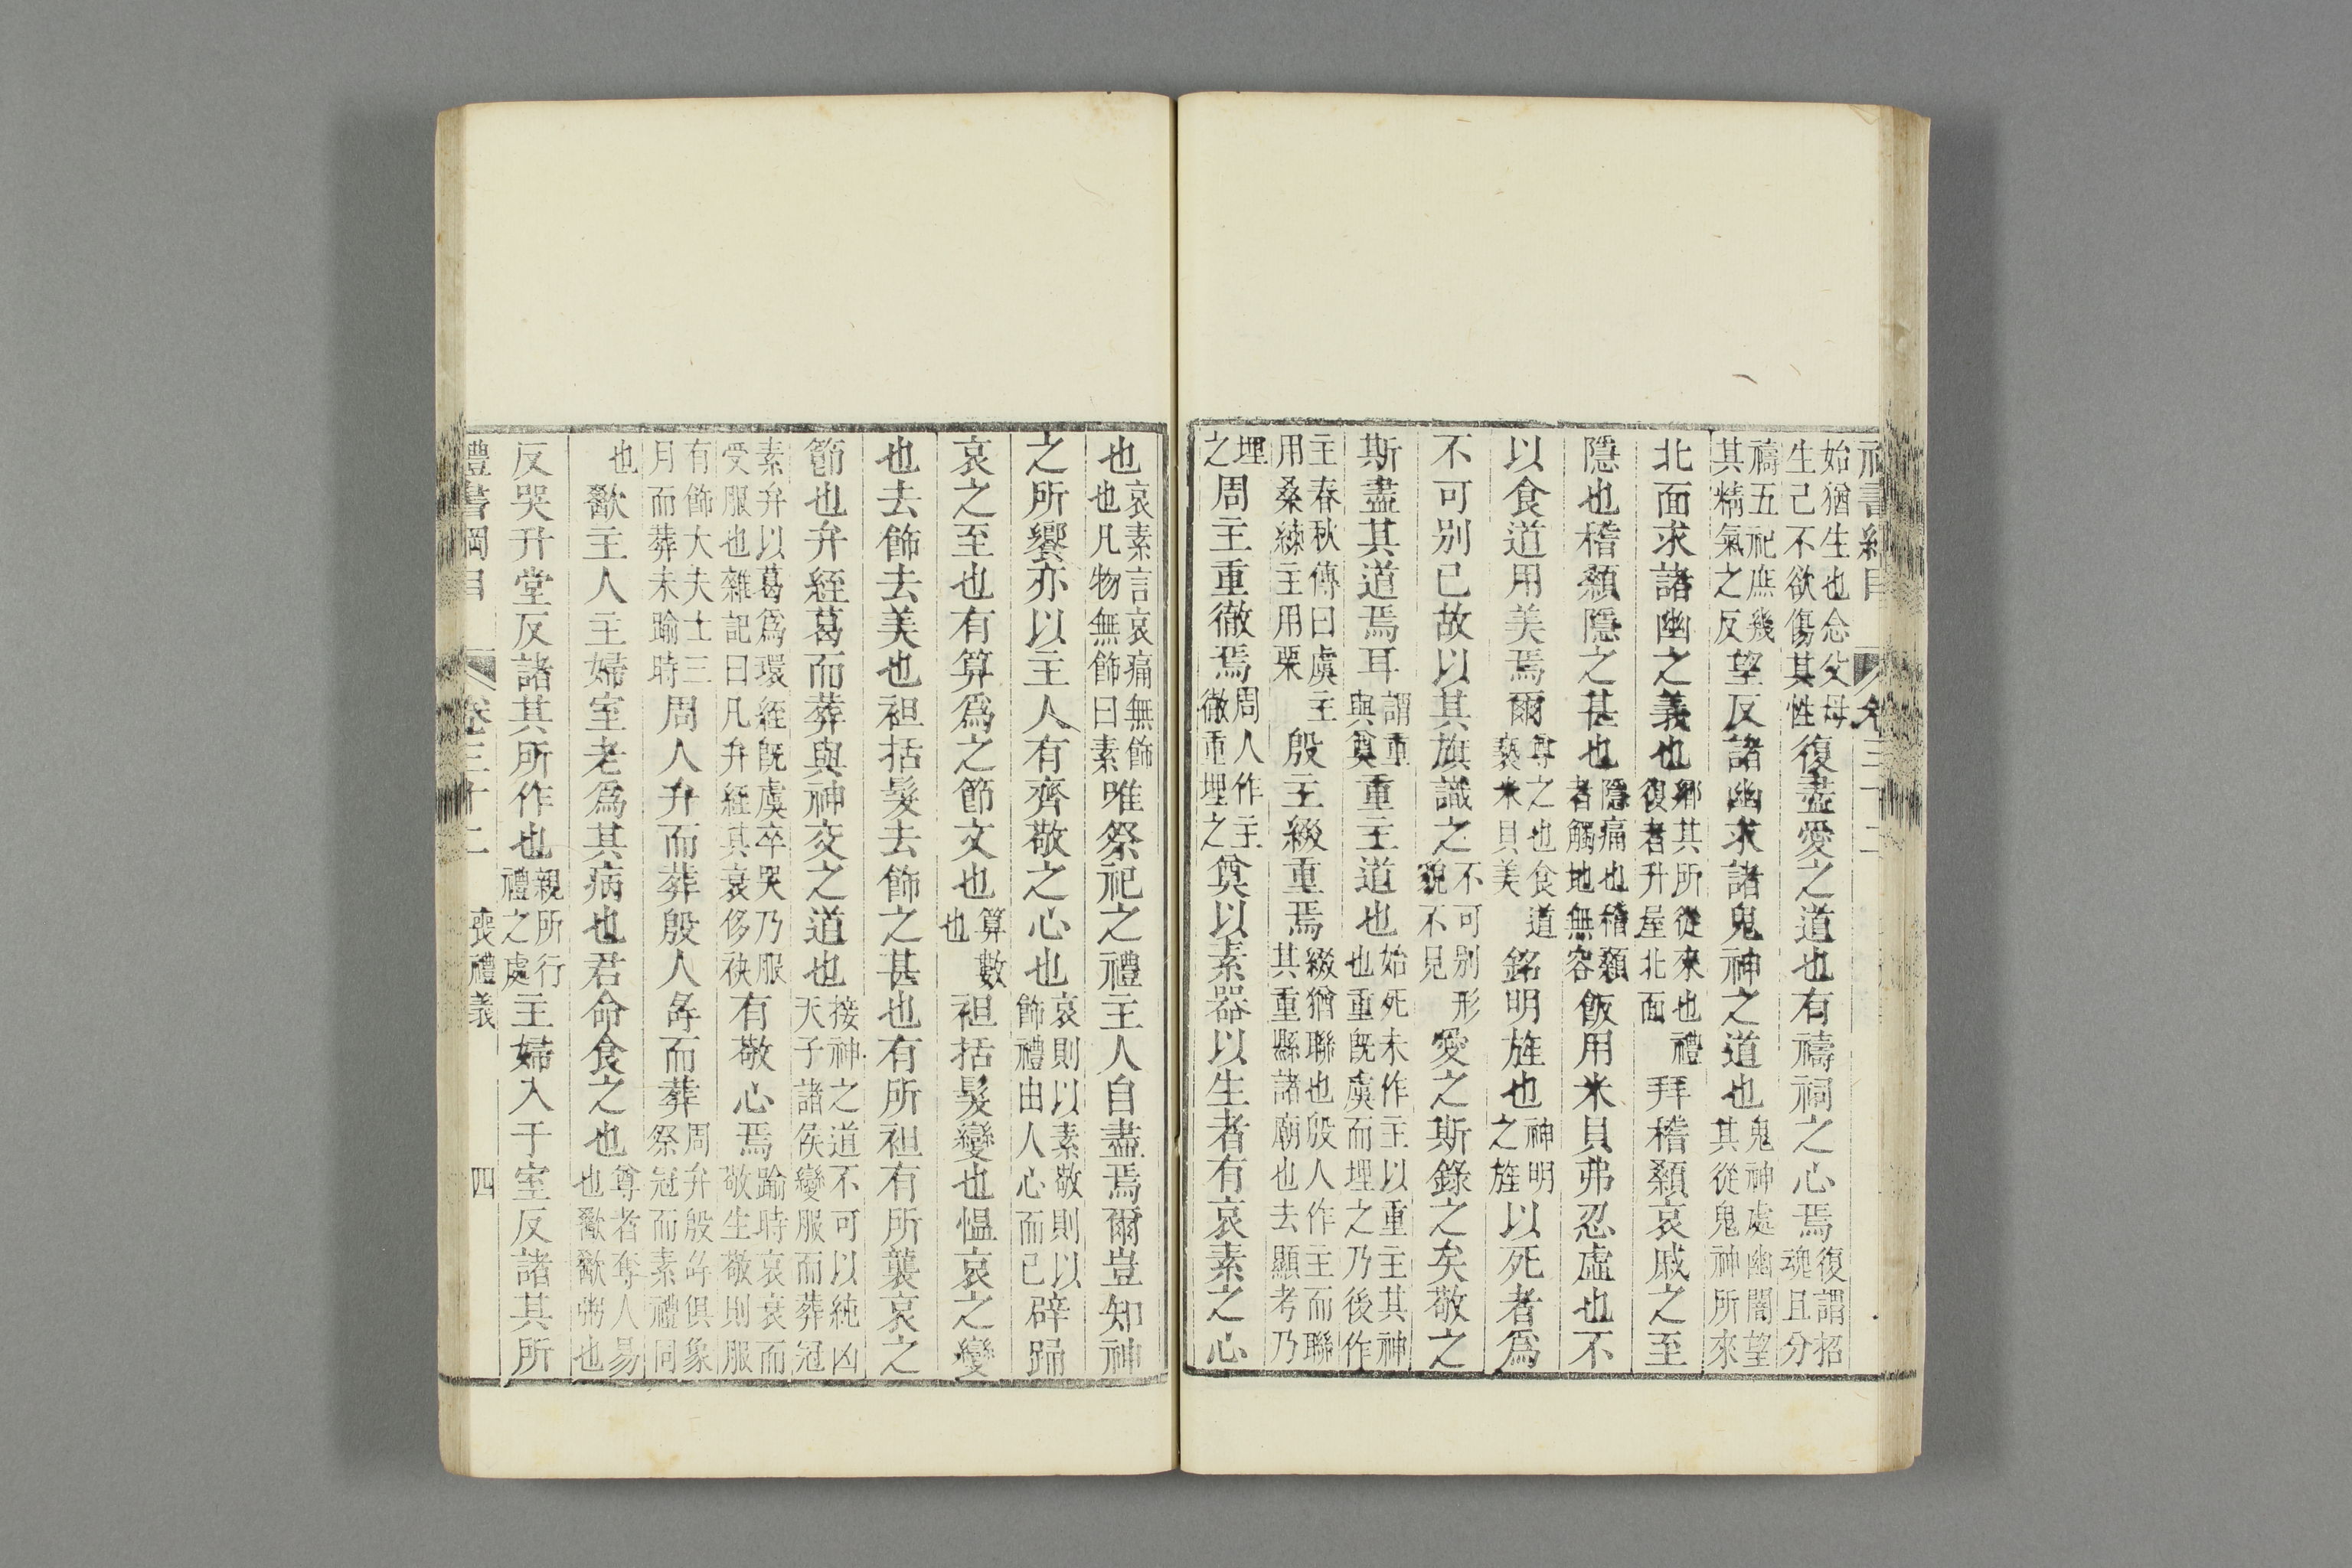 始猶生也念父母生己不欲傷其性復盡愛之道也有禱祠之心焉復謂招魂且分
禱五祀庶幾其精氣之反望反諸幽求諸鬼神之道也鬼神處幽闇望其從鬼神所來
北面求諸幽之義也鄉其所從來也禮復者升屋北面拜稽顙哀戚之至
隱也稽顙隱之甚也隱痛也稽顙者觸地無容飯用米貝弗忍虛也不
以食道用美焉爾尊之也食道褻米貝美銘明旌也神明之旌以死者爲
不可别已故以其旗識之不可别形貌不見愛之斯錄之矣敬之
斯盡其道焉耳謂重與奠重主道也始死未作主以重主其神也重旣虞而埋之乃後作
主春秋傳曰虞主用桑練主用栗殷主綴重焉綴猶聯也殷人作主而聯其重縣諸廟也去顯考乃
埋之周主重徹焉周人作主徹重埋之奠以素器以生者有哀素之心
也哀素言哀痛無飾也凡物無飾曰素唯祭祀之禮主人自盡焉爾豈知神
之所饗亦以主人有齊敬之心也哀則以素敬則以飾禮由人心而已辟踊
哀之至也有算爲之節文也算數也袒括髮變也慍哀之變
也去飾去美也袒括髮去飾之甚也有所袒有所襲哀之
節也弁絰葛而葬與神交之道也接神之道不可以純凶天子諸侯變服而葬冠
素弁以葛爲環絰旣虞卒哭乃服受服也雜記曰凡弁絰其衰侈袂有敬心焉踰時哀衰而敬生敬則服
有飾大夫士三月而葬未踰時周人弁而葬殷人冔而葬周弁殷冔俱象祭冠而素禮同
也歠主人主婦室老爲其病也君命食之也尊者奪人易也歠歠粥也
反哭升堂反諸其所作也親所行禮之處主婦入于室反諸其所
禮書綱目 卷三十二 喪禮義 四